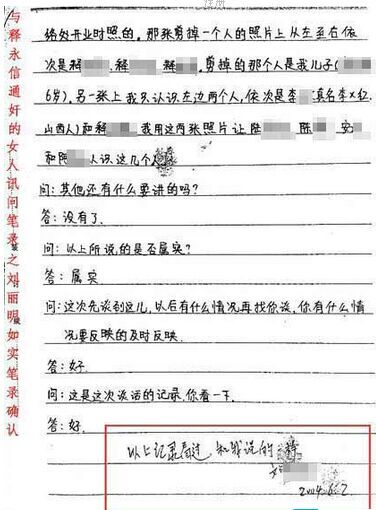 与释永信通奸的女人讯问笔录之刘丽明如实笔录确认
开业时照的。那张剪掉一个人的照片上从左至右依
次是释 释 释 剪掉的那个人是我儿子(
6岁)。另一张上我只认识左边两个人,依次是李 (真名李×红,
山西人)和释 我用这两张照片让 陈 陈 安
和 认识这几个人
问:其他还有什么要讲的吗?
答:没有了。
问:以上所说的是否属实?
答:属实
问:这次先谈到这儿,以后有什么情况再找你谈,你有什么情
况要反映的及时反映。
答:好
问:这是这次谈话的记录,你看一下。
答:好.
以上记录看过 和我说的
2004.6.2